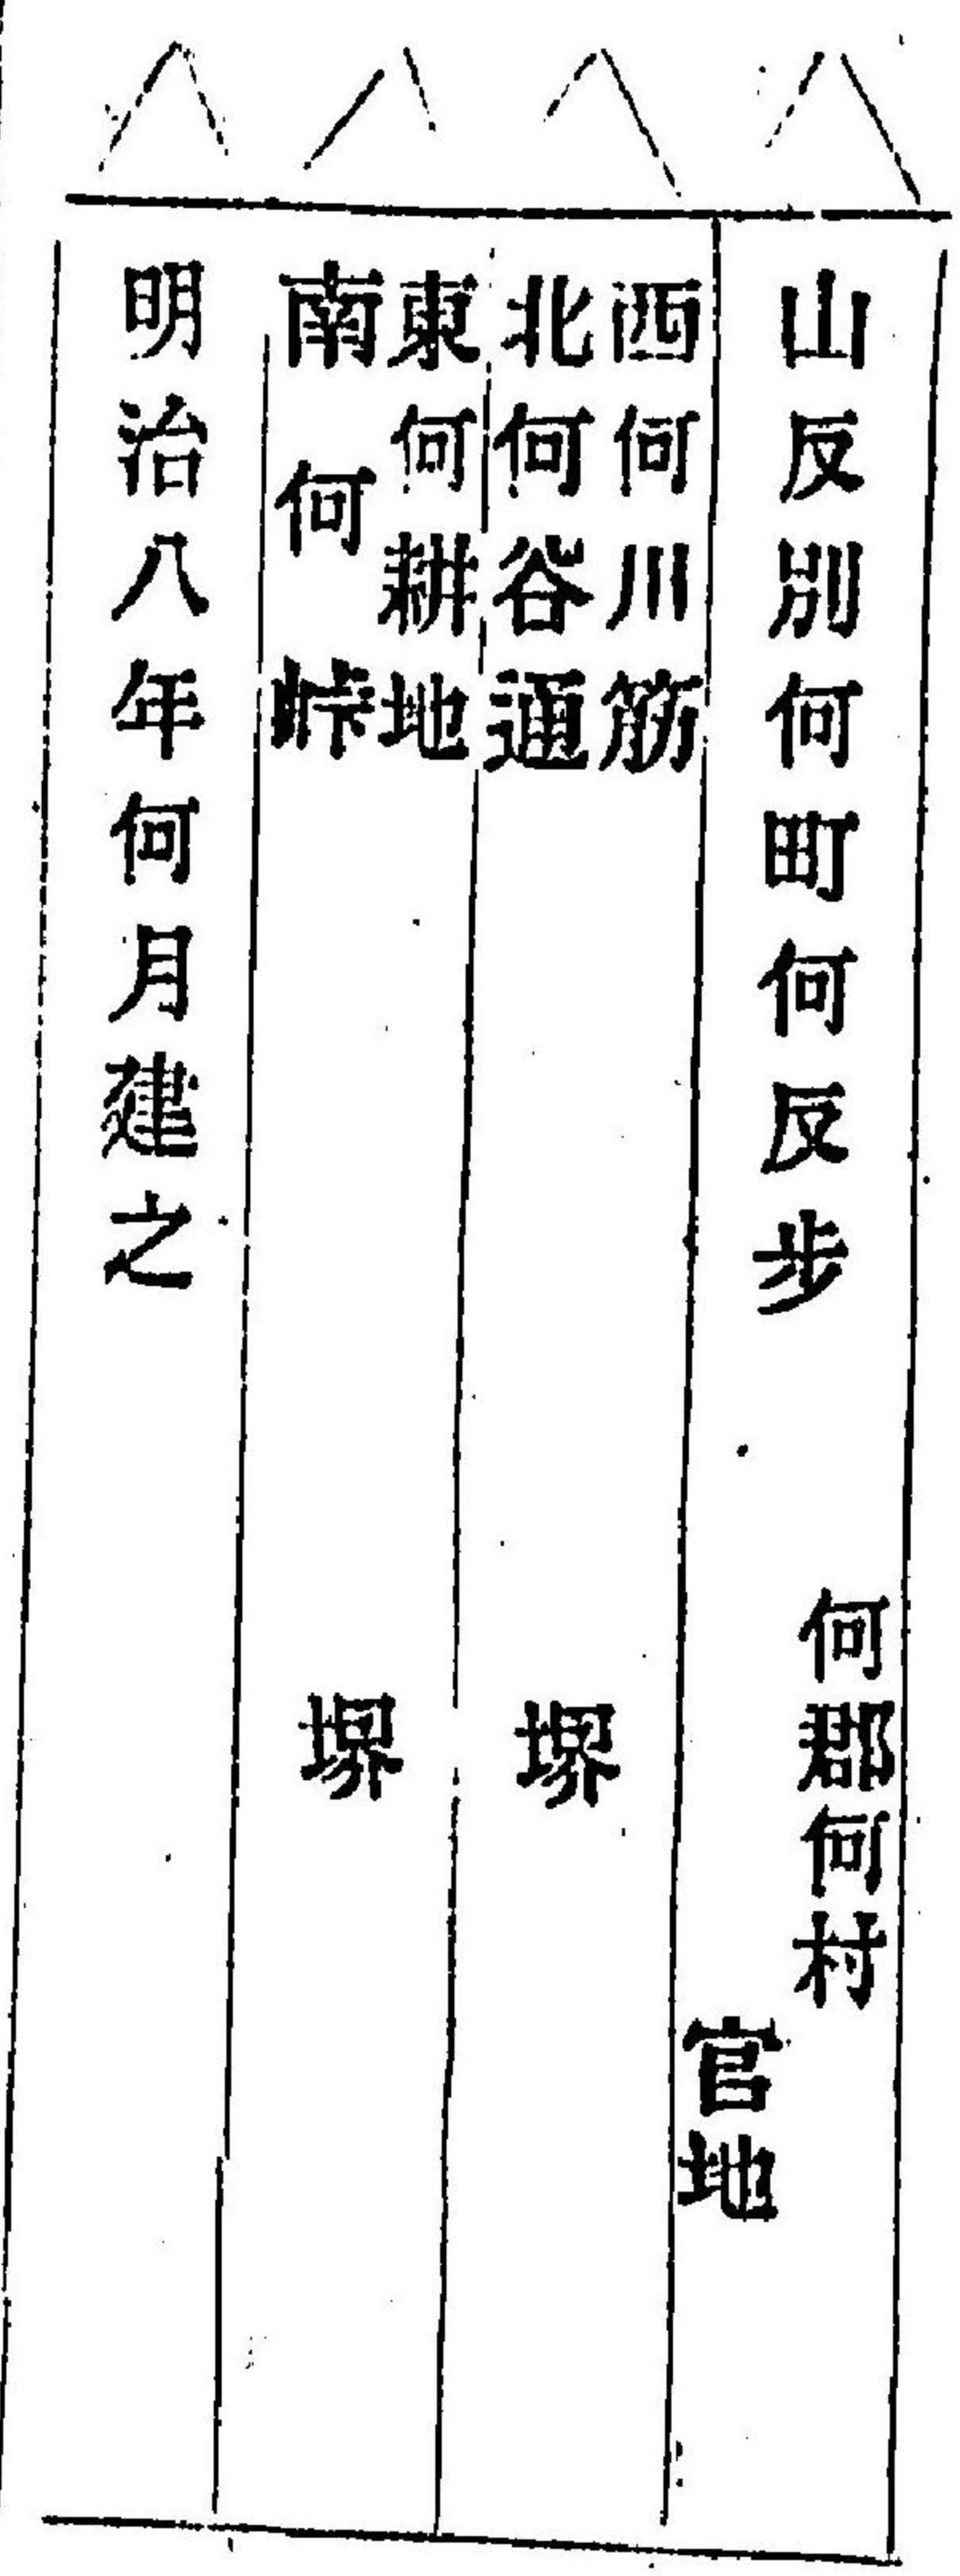 山反別何町何反步
何郡何村
官地
西何川筋
北何谷通
堺
東何耕地
南何峠
堺
明治八年何月建之